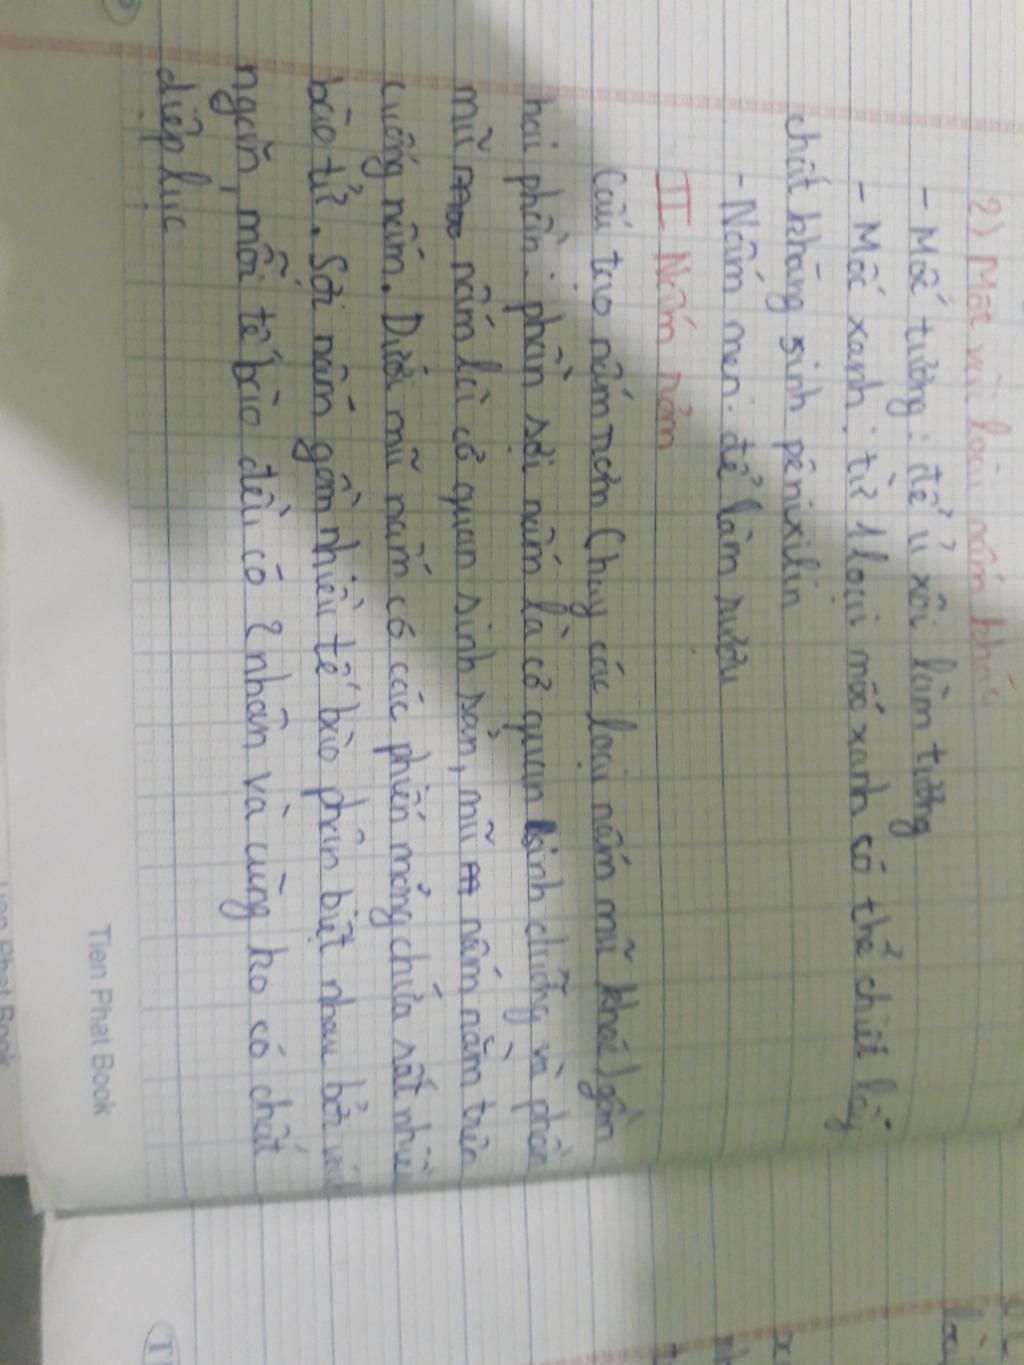 2) Một vài loài nấm khác
- Mốc tương: để ủ xôi làm tương
- Mốc xanh: từ 1 loại mốc xanh có thể chiết lấy
chất kháng sinh pênixilin
- Nấm men: để làm rượu
II. Nấm rơm
Cấu tạo nấm rơm (hay các loại nấm mũ khác) gồm
hai phần: phần sợi nấm là cơ quan sinh dưỡng và phần
mũ nấm là cơ quan sinh sản, mũ nấm nằm trên
cuống nấm. Dưới mũ nấm có các phiến mỏng chứa rất nhiều
bào tử. Sợi nấm gồm nhiều tế bào phân biệt nhau bởi vách
ngăn, mỗi tế bào đều có 2 nhân và cũng ko có chất
diệp lục
Tien Phat Book